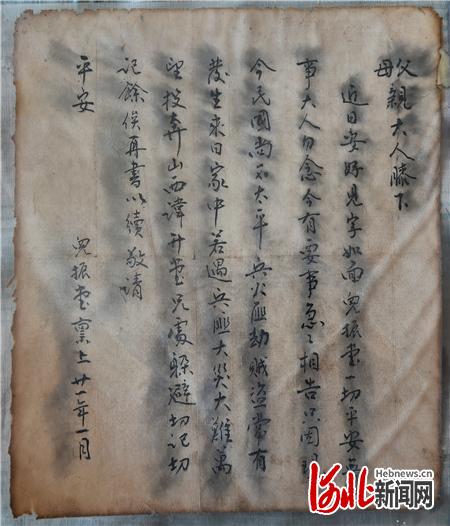 父母親大人膝下
近日安好見字如面兒振堂一切平安
事大人勿念今有要事急々相告只因現
今民國尚不太平兵火匪劫賊盜常有
發生來日家中若遇兵匪大災大難萬
望投奔山西諱升堂兄處躲避切記切
記餘俟再書以續敬請
平安
兒振堂禀上廿一年一月
Hebnews.cn
河北新闻网